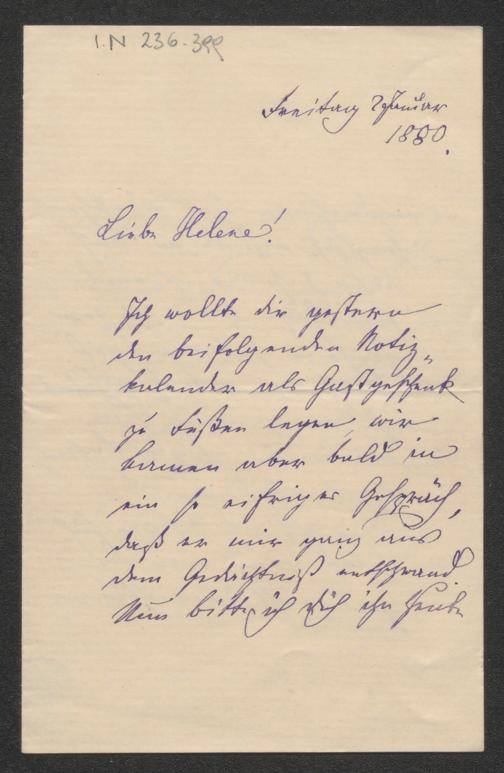 I.N 236.399
Freitag 2 Januar
1880.
Liebe Helene!
Ich wollte dir gestern
den beifolgenden Notiz-
kalender als Gastgeschenk
zu Füßen legen, wir
kamen aber bald in
ein so eifriges Gespräch,
daß er mir ganz aus
dem Gedächtniß entschwand.
Nun bitte ich dich ihn heute